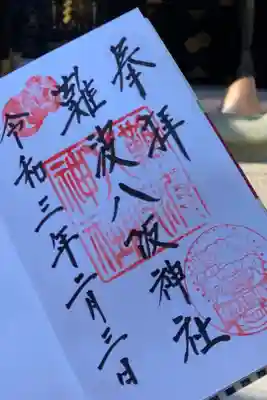 奉拝
難波八阪神社
令和三年二月三日